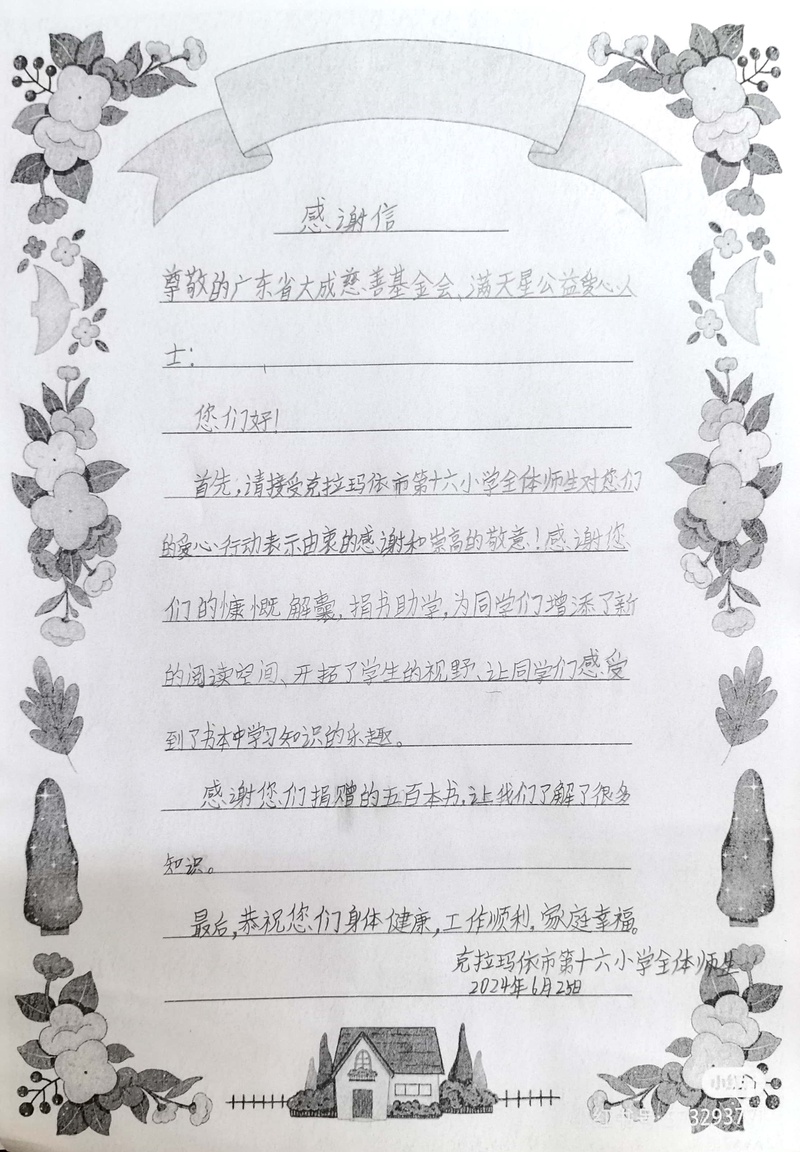 感谢信
尊敬的广东省大成慈善基金会、满天星公益爱心人
士：
您们好！
首先，请接受克拉玛依市第十六小学全体师生对您们
的爱心行动表示由衷的感谢和崇高的敬意！感谢您
们的慷慨解囊，捐书助学，为同学们增添了新
的阅读空间、开拓了学生的视野、让同学们感受
到了书本中学习知识的乐趣。
感谢您们捐赠的五百本书，让我们了解了很多
知识。
最后，恭祝您们身体健康，工作顺利，家庭幸福。
克拉玛依市第十六小学全体师生
2024年6月25日
小红书
32937